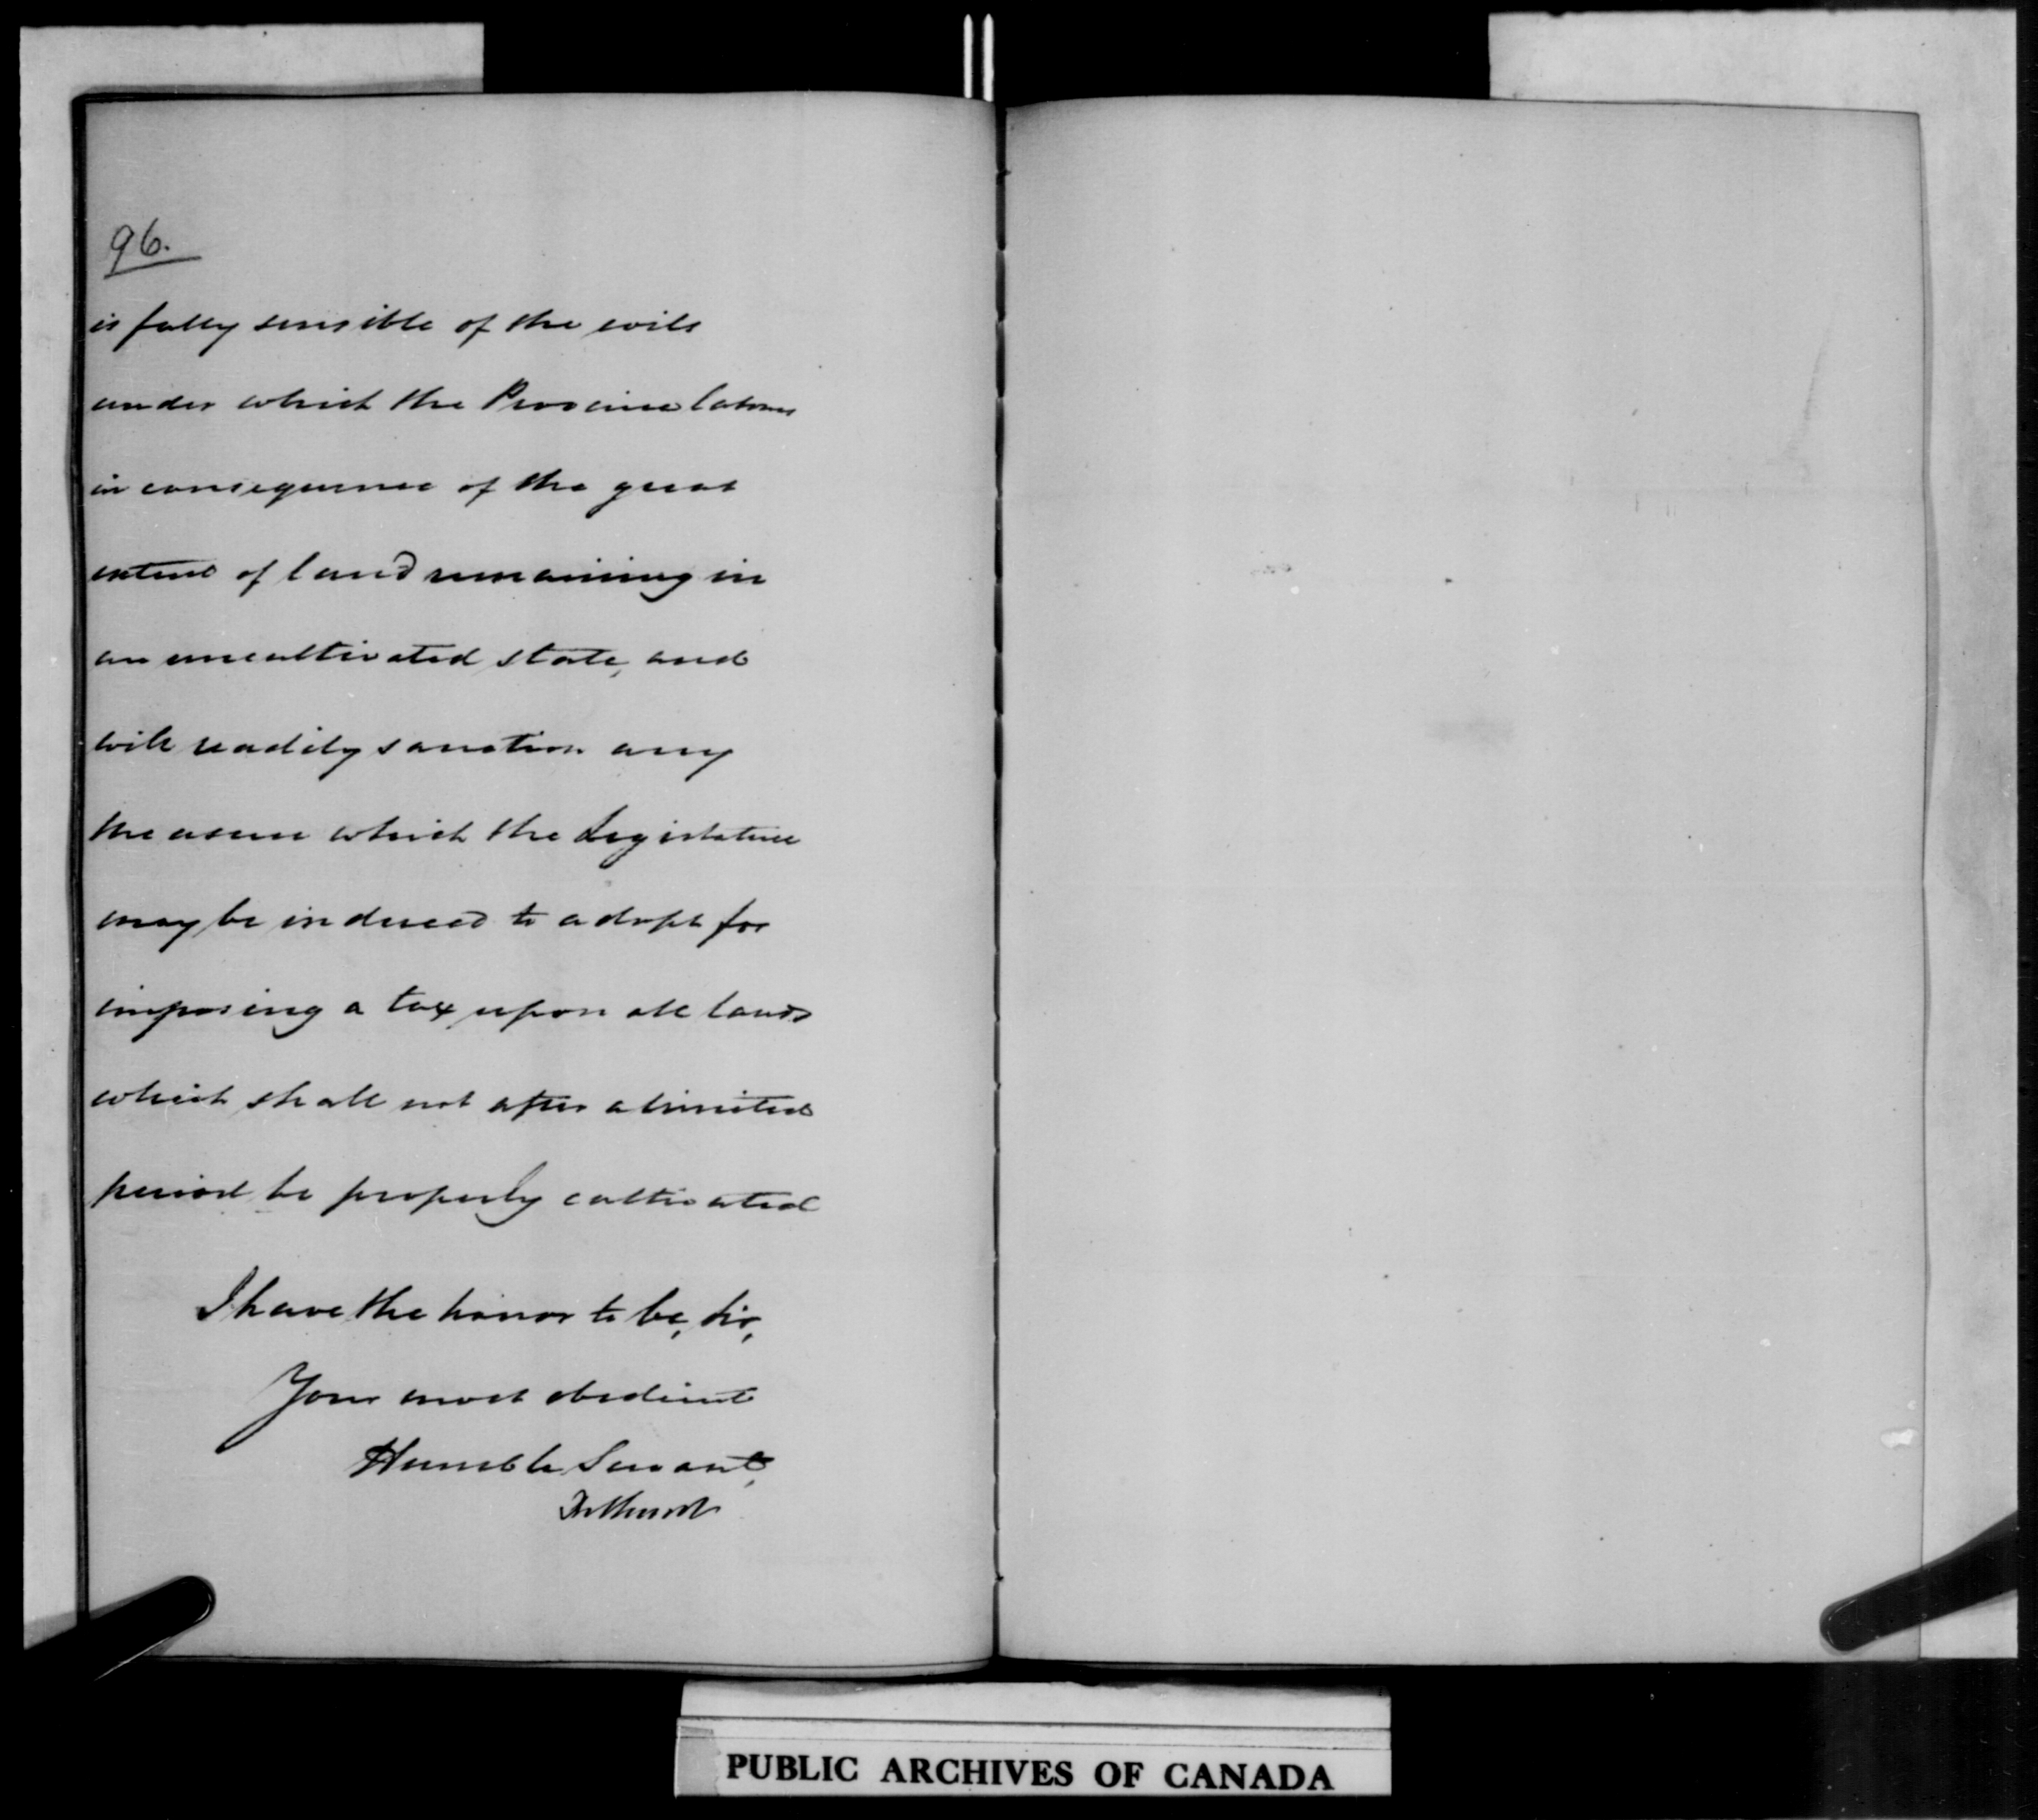 96.
is fully sensible of the evils
under which the Province labours
in consequence of the great
extent of land remaining in
an uncultivated state, and
will readily sanction any
measure which the Legislature
may be induced to adopt for
imposing a tax upon all lands
which shall not after a limited
period be properly cultivated
I have the honor to be, Sir,
Your most obedient
Humble Servant,
Bathurst
PUBLIC ARCHIVES OF CANADA